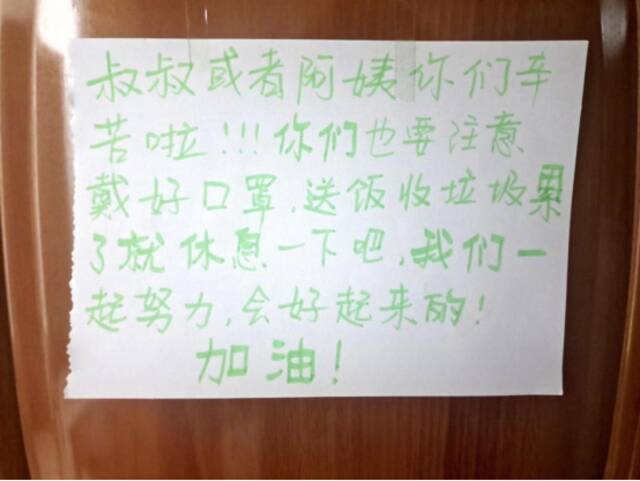 叔叔或者阿姨你们辛
苦啦!!!你们也要注意
戴好口罩,送饭收垃圾累
了就休息一下吧,我们一
起努力,会好起来的!
加油!